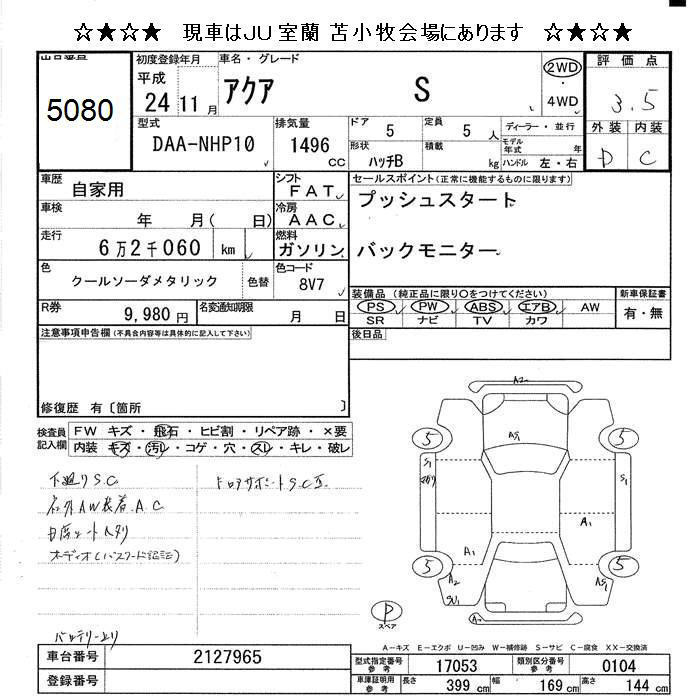 ☆★☆★ 現車はJU室蘭 苫小牧会場にあります ☆★☆★
5080
初度登録年月
平成
24 11 月
車名・グレード
アクア S
2WD
4WD
評価点
3.5
外装 内装
D C
型式
DAA-NHP10
排気量
1496
CC
ドア 5
定員 5 人
形状 ハッチB
積載 kg
ディーラー・並行
モデル年式 年
ハンドル 左・右
車歴 自家用
シフト FAT
車検 年 月( 日)
冷房 AAC
走行 6万2千060 km
燃料 ガソリン
色 クールソーダメタリック 色替
色コード 8V7
R券 9,980円
名変通知期限 月 日
セールスポイント(正常に機能するものに限ります)
プッシュスタート
バックモニター
装備品(純正品に限り○をつけてください)
PS PW ABS エアB AW
SR ナビ TV カワ
新車保証書
有・無
後日品
注意事項申告欄(不具合内容等は具体的に記入して下さい)
修復歴 有〔箇所 〕
検査員記入欄
FW キズ・飛石・ヒビ割・リペア跡・×要
内装 キズ・汚レ・コゲ・穴・スレ・キレ・破レ
下廻りS.C
A.C
A2
A1
5
5
S1
S1
A1
A1
5
5
A2
P
スペア
A-キズ E-エクボ U-凹み W-補修跡 S-サビ C-腐食 XX-交換済
車台番号 2127965
登録番号
型式指定番号参考 17053
類別区分番号参考 0104
車庫証明用参考 長さ 399 cm 幅 169 cm 高さ 144 cm